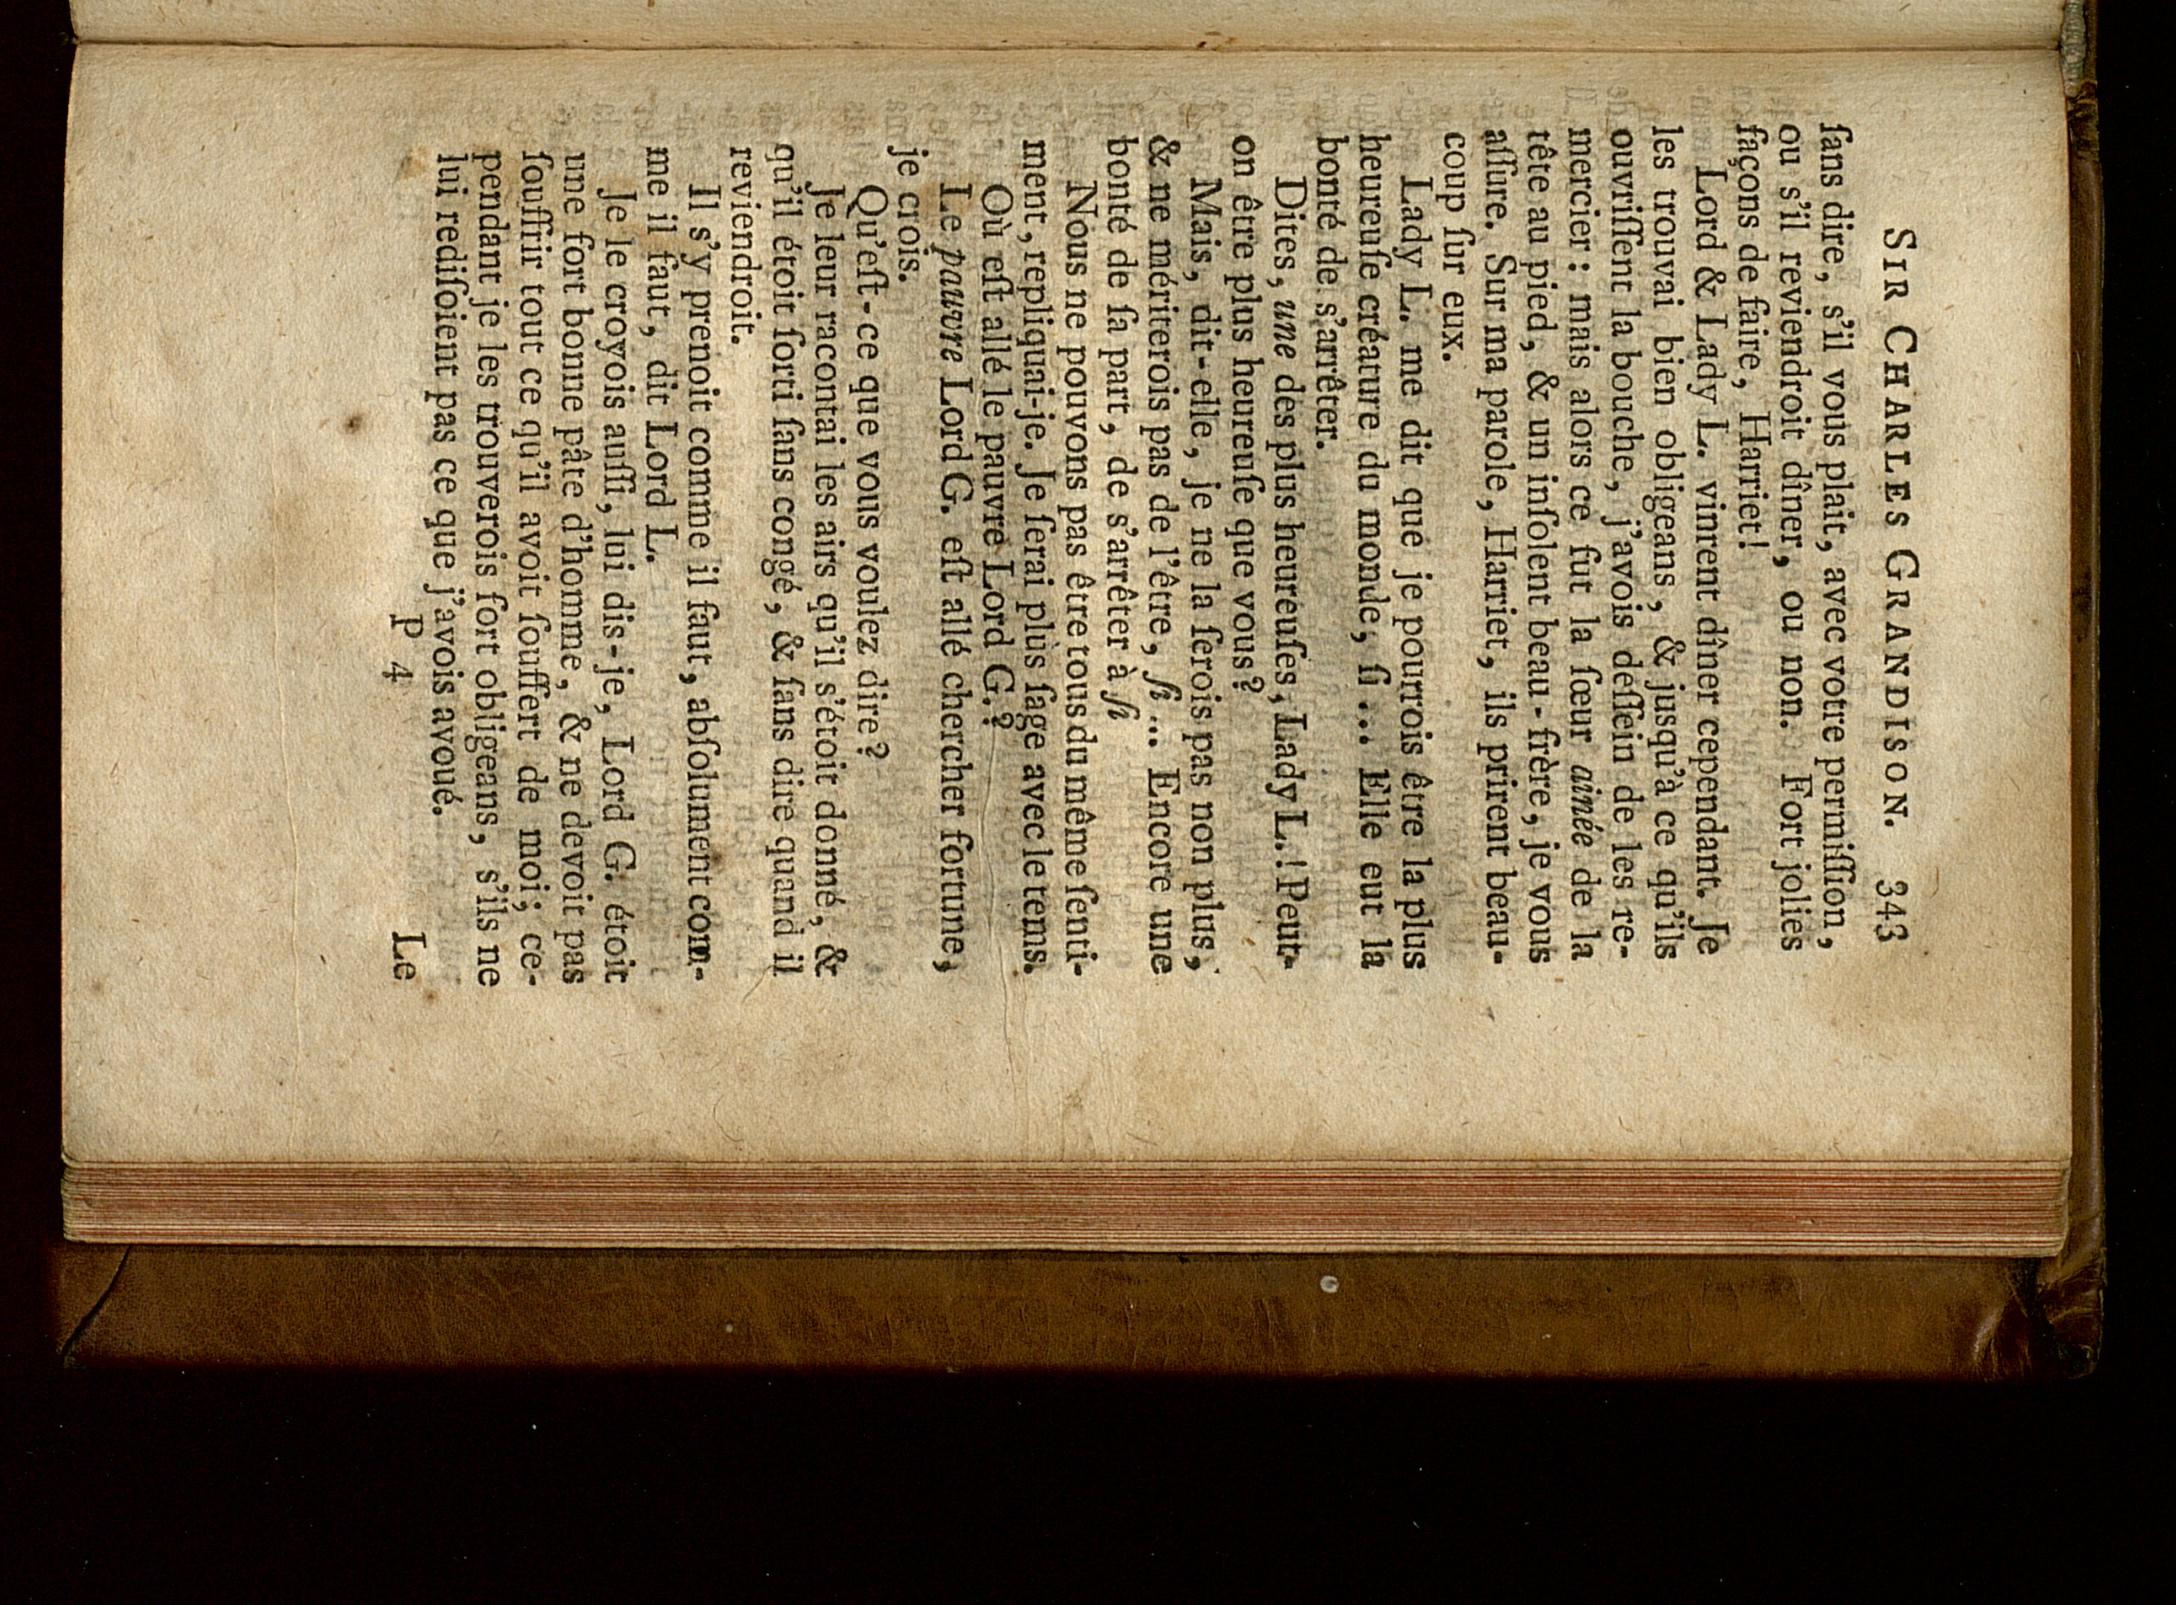 SIR CHARLES GRANDISON. 343
ſans dire, s'il vous plait, avec votre permiſſion,
ou s'il reviendroit dîner, ou non. Fort jolies
façons de faire, Harriet!
Lord & Lady L. vinrent dîner cependant. Je
les trouvai bien obligeans, & jusqu'à ce qu'ils
ouvriſſent la bouche, j'avois deſſein de les re-
mercier: mais alors ce fut la ſœur ainée de la
tête au pied, & un inſolent beau-frère, je vous
aſſure. Sur ma parole, Harriet, ils prirent beau-
coup ſur eux.
Lady L. me dit que je pourrois être la plus
heureuſe créature du monde, ſi ... Elle eut la
bonté de s'arrêter.
Dites, une des plus heureuſes, Lady L.! Peut-
on être plus heureuſe que vous?
Mais, dit-elle, je ne la ſerois pas non plus,
& ne mériterois pas de l'être, ſi ... Encore une
bonté de ſa part, de s'arrêter à ſi
Nous ne pouvons pas être tous du même ſenti-
ment, repliquai-je. Je ſerai plus ſage avec le tems.
Où eſt allé le pauvre Lord G.?
Le pauvre Lord G. eſt allé chercher fortune,
je crois.
Qu'eſt-ce que vous voulez dire?
Je leur racontai les airs qu'il s'étoit donné, &
qu'il étoit ſorti ſans congé, & ſans dire quand il
reviendroit.
Il s'y prenoit comme il faut, abſolument com-
me il faut, dit Lord L.
Je le croyois auſſi, lui dis-je, Lord G. étoit
une fort bonne pâte d'homme, & ne devoit pas
ſouffrir tout ce qu'il avoit ſouffert de moi; ce-
pendant je les trouverois fort obligeans, s'ils ne
lui rediſoient pas ce que j'avois avoué.
P 4 Le